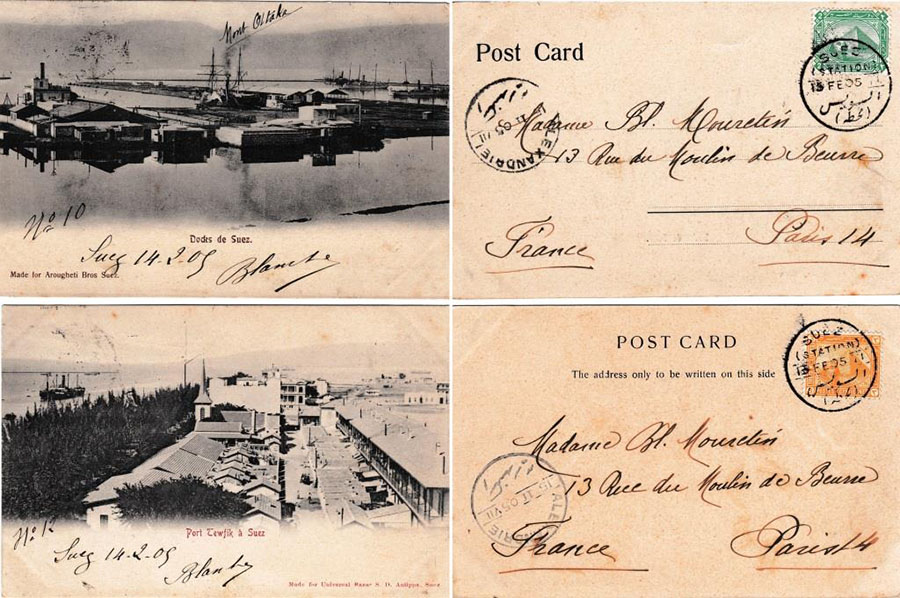 Mont Attáka
No 10
Docks de Suez.
Suez 14-2-05
Blanche
Made for Arougheti Bros Suez.
Post Card
SUEZ
(STATION)
15 FE 05
ALEXANDRIE
Madame Bl. Mouretin
13 Rue du Moulin de Beurre
France
Paris 14
No 12
Port Tewfik à Suez
Suez 14-2-05
Blanche
Made for Universal Bazar S. D. Antippa, Suez.
POST CARD
The address only to be written on this side
SUEZ
(STATION)
15 FE 05
Madame Bl. Mouretin
13 Rue du Moulin de Beurre
France
Paris 14